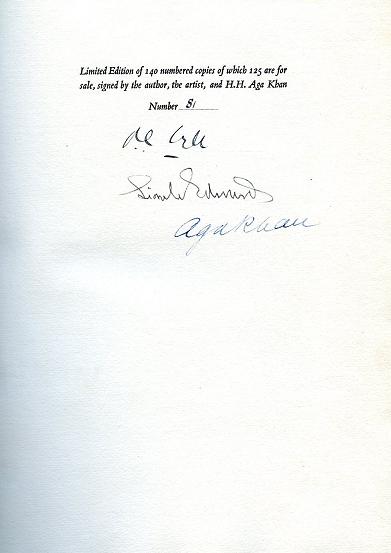 Limited Edition of 140 numbered copies of which 125 are for
sale, signed by the author, the artist, and H.H. Aga Khan
Number 81
Lionel Edwards
Aga Khan